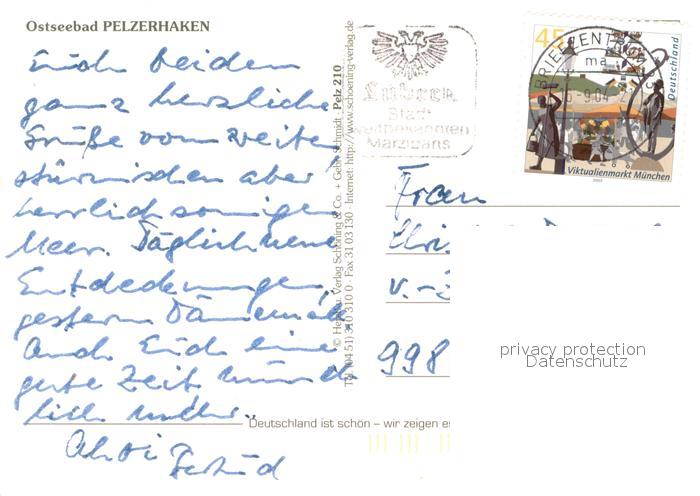 Ostseebad PELZERHAKEN
Euch beiden
ganz herzliche
Grüße vom weiten
stürmischen aber
herrlich sonnigen
Meer. Täglich neue
Entdeckungen,
gestern Dänemark
Auch Euch eine
gute Zeit
Deutschland ist schön – wir zeigen es
© Verlag Schöning & Co. + Gebr. Schmidt · Pelz 210
Tel. (04 51) 3 10 31 0 · Fax 31 03 130 · Internet: http://www.schoening-verlag.de
Lübeck
Stadt
weltbekannten
Marzipans
BRIEFZENTRUM
9.04
45
Deutschland
Viktualienmarkt München
2003
Frau
v.
998
privacy protection
Datenschutz